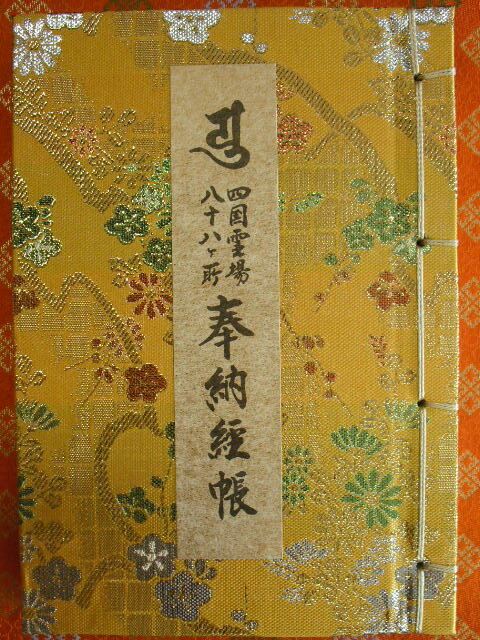 𑖧𑖲
四国霊場
八十八ヶ所
奉納経帳